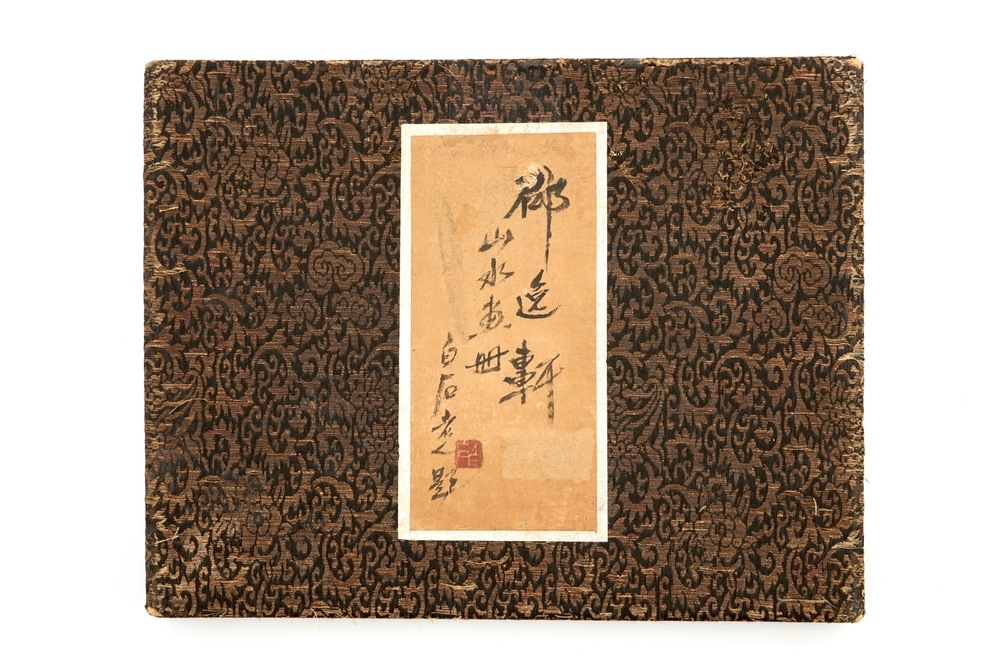 邵逸軒
山水畫冊
白石老人題